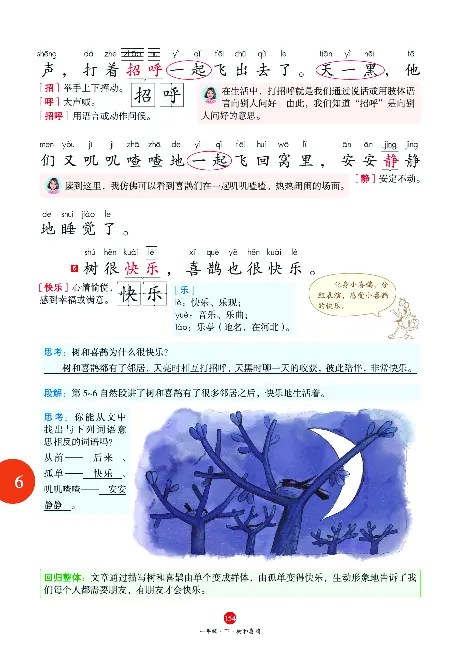 shēng dǎ zhe zhāo hu yì qǐ fēi chū qù le tiān yì hēi tā
声，打着招呼一起飞出去了。天一黑，他
［招］举手上下挥动。
［呼］大声喊。
［招呼］用语言或动作问候。
招呼
在生活中，打招呼就是我们通过说话或用肢体语
言向别人问好。由此，我们知道“招呼”是向别
人问好的意思。
men yòu jī jī zhā zhā de yì qǐ fēi huí wō lǐ ān ān jìng jìng
们又叽叽喳喳地一起飞回窝里，安安静静
读到这里，我仿佛可以看到喜鹊们在一起叽叽喳喳，热热闹闹的场面。
［静］安定不动。
de shuì jiào le
地睡觉了。
shù hěn kuài lè xǐ què yě hěn kuài lè
6 树很快乐，喜鹊也很快乐。
［快乐］心情愉悦，
感到幸福或满意。
快乐
［乐］
lè：快乐、乐观；
yuè：音乐、乐曲；
lào：乐亭（地名，在河北）。
化身小喜鹊，分
组表演，感受小喜鹊
的快乐。
思考：树和喜鹊为什么很快乐？
树和喜鹊都有了邻居，天亮时相互打招呼，天黑时聊一天的收获，彼此陪伴，非常快乐。
段解：第5~6自然段讲了树和喜鹊有了很多邻居之后，快乐地生活着。
思考：你能从文中
找出与下列词语意
思相反的词语吗？
从前—— 后来 、
孤单—— 快乐 、
叽叽喳喳—— 安安
静静 。
6
回归整体：文章通过描写树和喜鹊由单个变成群体，由孤单变得快乐，生动形象地告诉了我
们每个人都需要朋友，有朋友才会快乐。
154
一年级·下·树和喜鹊